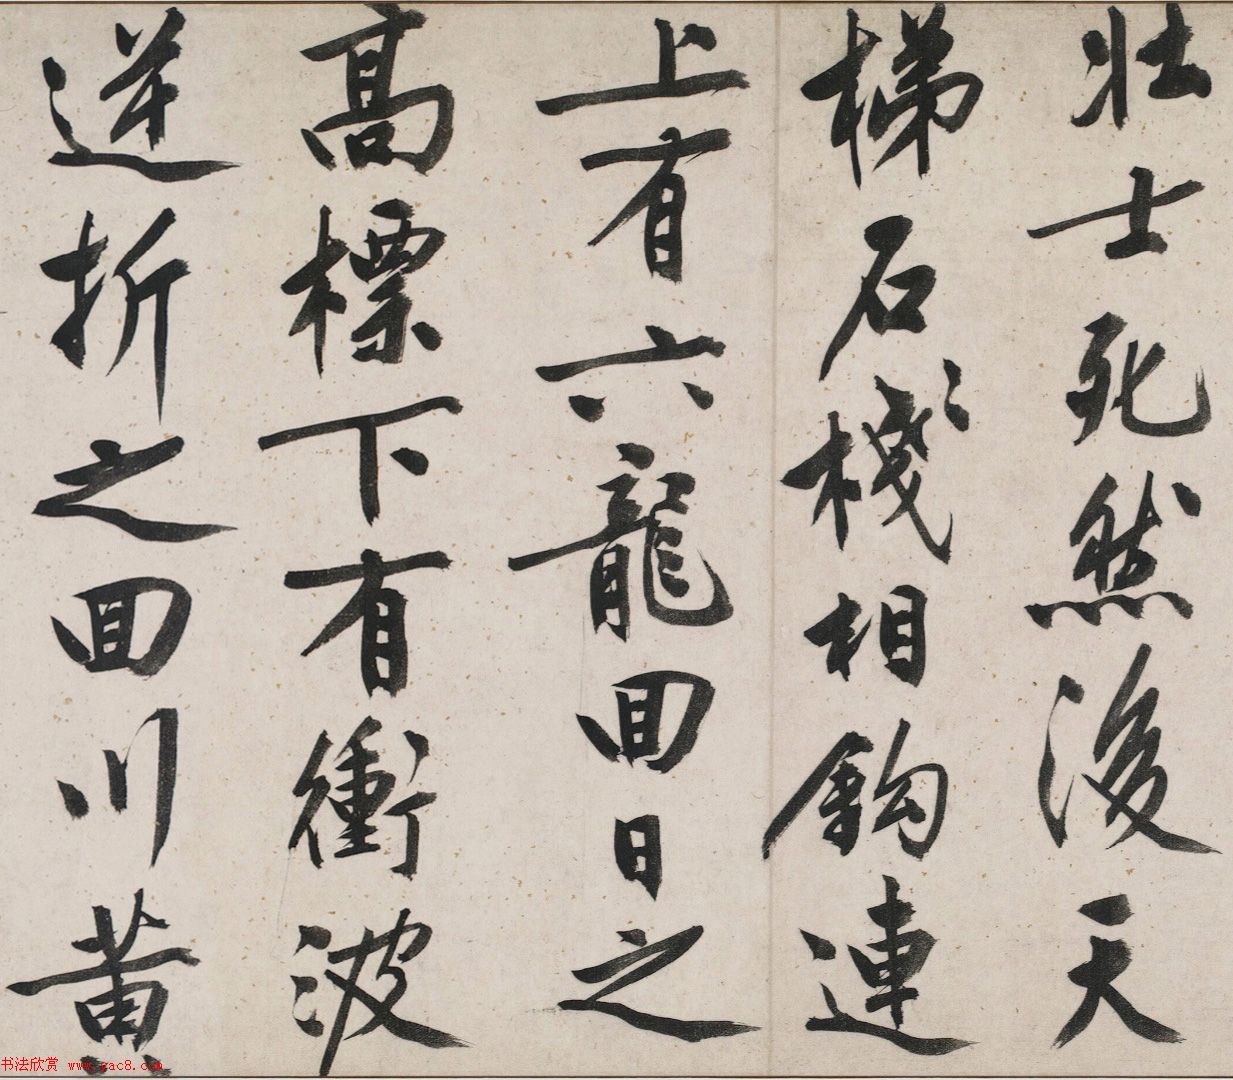 壯士死然後天
梯石棧相鈎連
上有六龍回日之
高標下有衝波
逆折之回川黃
书法欣赏 www.yac8.com